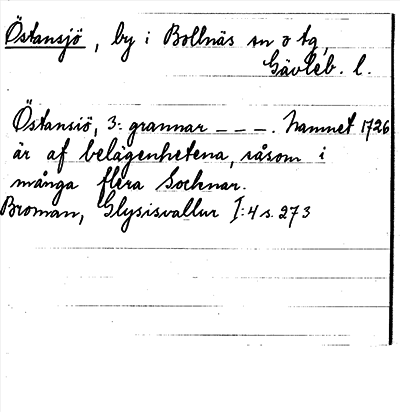 Östansjö, by i Bollnäs sn o tg,
Gävleb. l.
Östansiö, 3: grannar - - -. Namnet 1726
är af belägenhetena, såsom i
många flera Socknar.
Broman, Glysisvallur I:4 s. 273